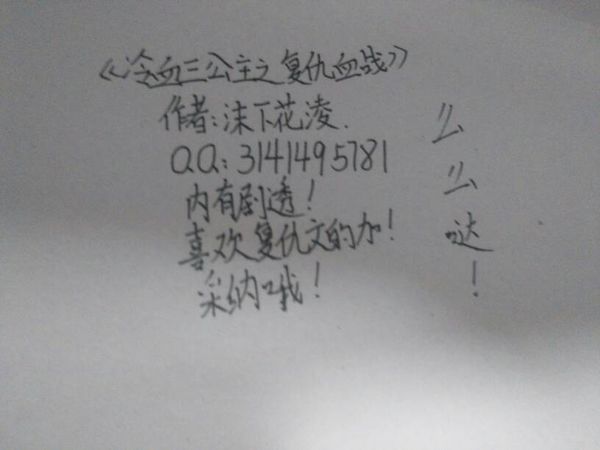 《冷血三公主之复仇血战》
作者:沫下花凌.
QQ:3141495781
内有剧透!
喜欢复仇文的加!
采纳哦!
么
么
哒
!